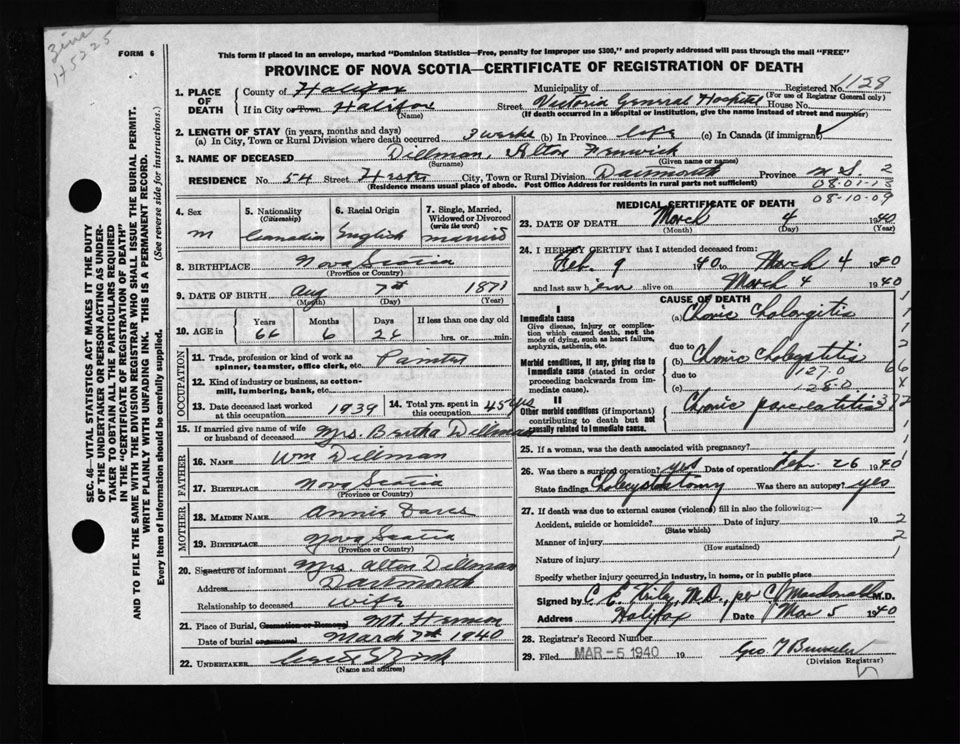 FORM 6
This form if placed in an envelope, marked "Dominion Statistics—Free, penalty for improper use $300," and properly addressed will pass through the mail "FREE"
PROVINCE OF NOVA SCOTIA—CERTIFICATE OF REGISTRATION OF DEATH
Registered No. 1128
(For use of Registrar General only)
1. PLACE OF DEATH
County of Halifax Municipality of
If in City or Town Halifax Street Victoria General Hospital House No.
(Name) (If death occurred in a Hospital or institution, give the name instead of street and number)
2. LENGTH OF STAY (in years, months and days)
(a) In City, Town or Rural Division where death occurred 3 weeks (b) In Province life (c) In Canada (if immigrant)
3. NAME OF DECEASED Dillman, Alton Fenwick
(Surname) (Given name or names)
RESIDENCE No. 54 Street Hester City, Town or Rural Division Dartmouth Province N.S. 2
(Residence means usual place of abode. Post Office Address for residents in rural parts not sufficient)
08-01-13
08-10-09
4. Sex
5. Nationality (Citizenship)
6. Racial Origin
7. Single, Married, Widowed or Divorced (write the word)
m Canadian English married
8. BIRTHPLACE Nova Scotia
(Province or Country)
9. DATE OF BIRTH Aug 7th 1873
(Month) (Day) (Year)
10. AGE in Years Months Days If less than one day old
66 6 26 hrs. or min.
OCCUPATION
11. Trade, profession or kind of work as spinner, teamster, office clerk, etc. Painter
12. Kind of industry or business, as cotton-mill, lumbering, bank, etc.
13. Date deceased last worked at this occupation 1939
14. Total yrs. spent in this occupation 45 yrs
15. If married give name of wife or husband of deceased Mrs. Bertha Dillman
FATHER
16. NAME Wm Dillman
17. BIRTHPLACE Nova Scotia
(Province or Country)
MOTHER
18. MAIDEN NAME Annie
19. BIRTHPLACE Nova Scotia
(Province or Country)
20. Signature of informant Mrs. Alton Dillman
Address Dartmouth
Relationship to deceased wife
21. Place of Burial, Cremation or Removal Mt. Hermon
Date of burial or removal March 7th 1940
22. UNDERTAKER
(Name and address)
MEDICAL CERTIFICATE OF DEATH
23. DATE OF DEATH March 4 1940
(Month) (Day) (Year)
24. I HEREBY CERTIFY that I attended deceased from:
Feb. 9 1940 to March 4 1940
and last saw him alive on March 4 1940
CAUSE OF DEATH
I
Immediate cause
Give disease, injury or complication which caused death, not the mode of dying, such as heart failure, asphyxia, asthenia, etc.
(a)
due to
Morbid conditions, if any, giving rise to immediate cause (stated in order proceeding backwards from immediate cause).
(b) Chronic
due to 127-0
(c) 128-0
II
Other morbid conditions (if important) contributing to death but not causally related to immediate cause.
Chronic pancreatitis
25. If a woman, was the death associated with pregnancy?
26. Was there a surgical operation? yes Date of operation Feb. 26 1940
State findings Was there an autopsy? yes
27. If death was due to external causes (violence) fill in also the following:—
Accident, suicide or homicide? Date of injury 19
(State which)
Manner of injury
(How sustained)
Nature of injury
Specify whether injury occurred in industry, in home, or in public place
Signed by C. E. M.D., per C Macdonald M.D.
Address Halifax Date Mar 5 1940
28. Registrar's Record Number
29. Filed MAR-5 1940 19 Geo.
(Division Registrar)
SEC. 46—VITAL STATISTICS ACT MAKES IT THE DUTY
OF THE UNDERTAKER OR PERSON ACTING AS UNDER-
TAKER TO OBTAIN ALL THE PARTICULARS REQUIRED
IN THE "CERTIFICATE OF REGISTRATION OF DEATH"
AND TO FILE THE SAME WITH THE DIVISION REGISTRAR WHO SHALL ISSUE THE BURIAL PERMIT.
WRITE PLAINLY WITH UNFADING INK. THIS IS A PERMANENT RECORD.
Every item of information should be carefully supplied. (See reverse side for instructions.)